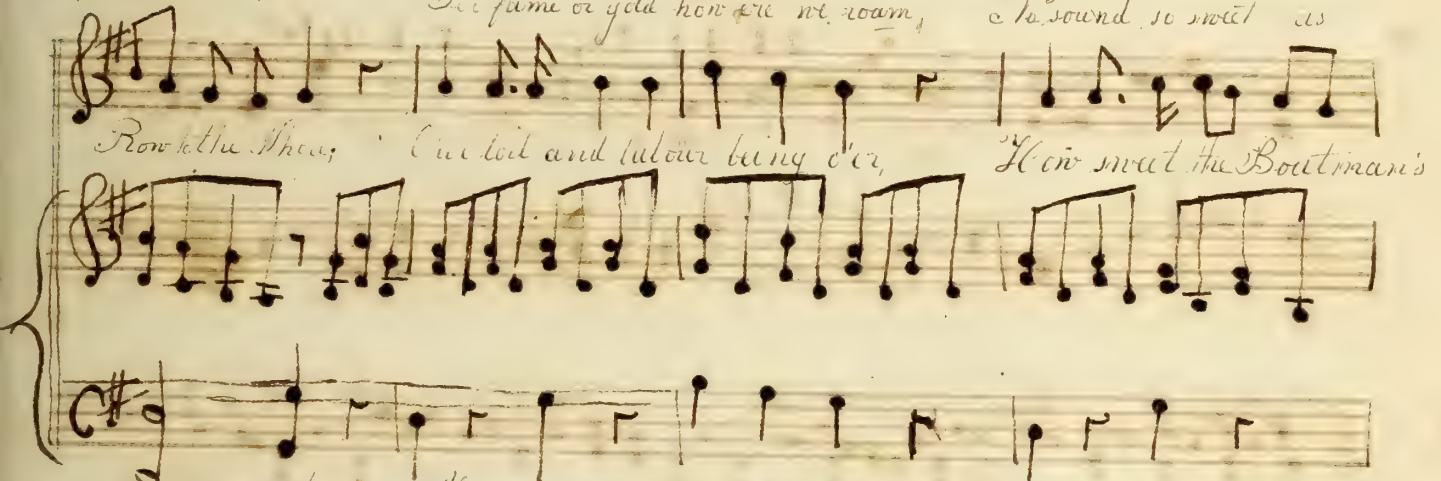 fame or gold how ere we roam, No sound so sweet as
Row to the Shore; Our toil and labour being o'er, How sweet the Boatman's